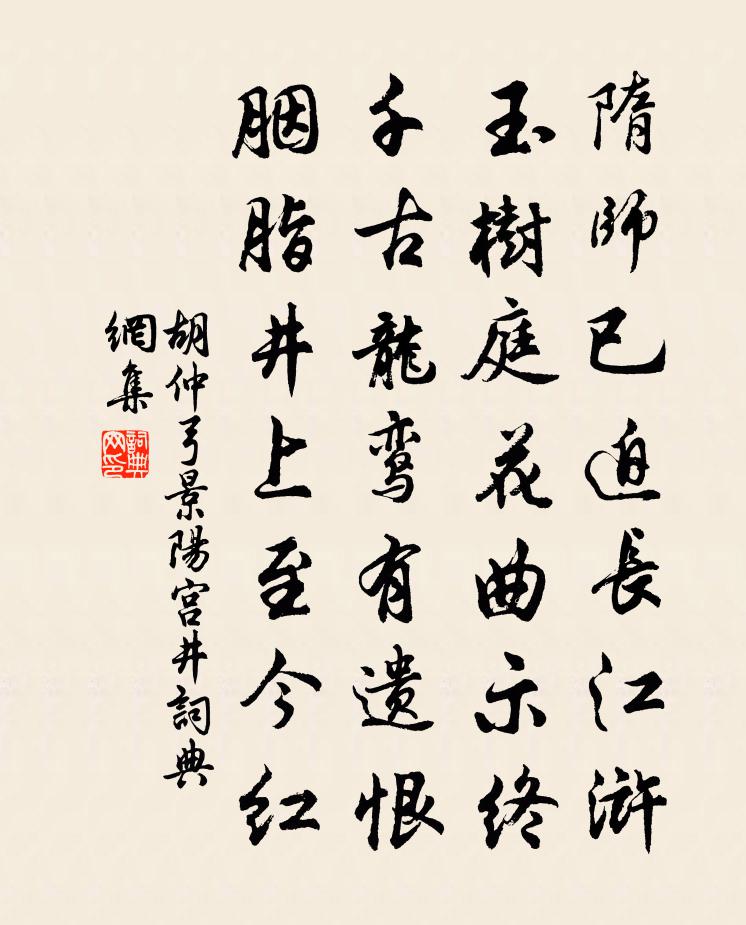 隋師已迫長江滸
玉樹庭花曲示終
千古龍鸾有遺恨
胭脂井上至今红
胡仲弓景陽宫井詞典
網集
詞典網印